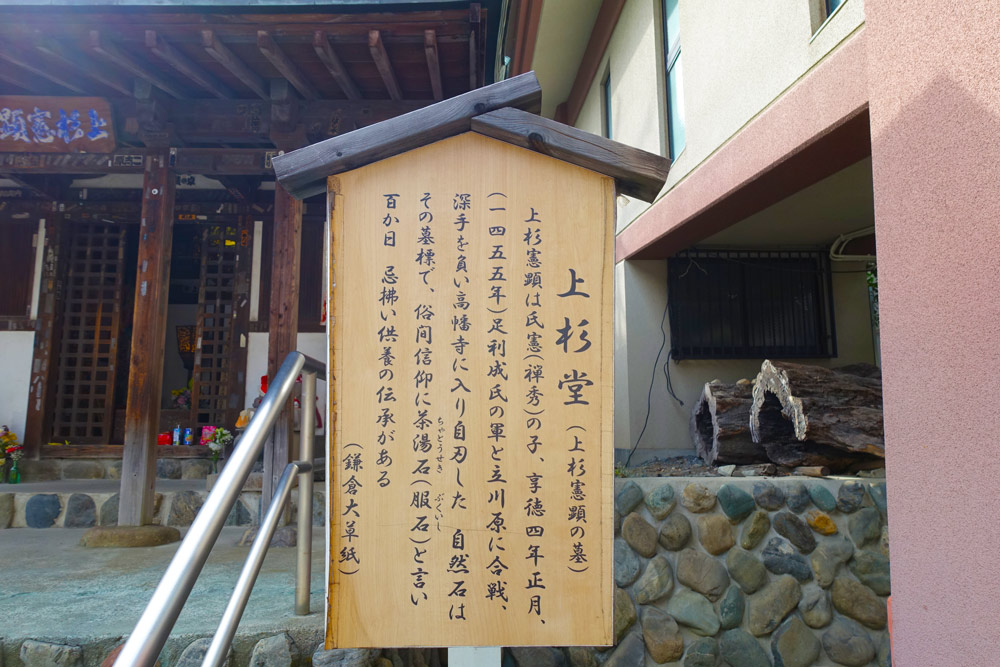 上杉堂(上杉憲顕の墓)
上杉憲顕は氏憲(禅秀)の子、享徳四年正月、
(一四五五年)足利成氏の軍と立川原に合戦、
深手を負い高幡寺に入り自刃した 自然石は
その墓標で、俗间信仰に茶湯石(服石)と言い
ちゃとうせき
ぶくいし
百か日 忌拂い供養の伝承がある
(鎌倉大草紙)
上杉憲顕